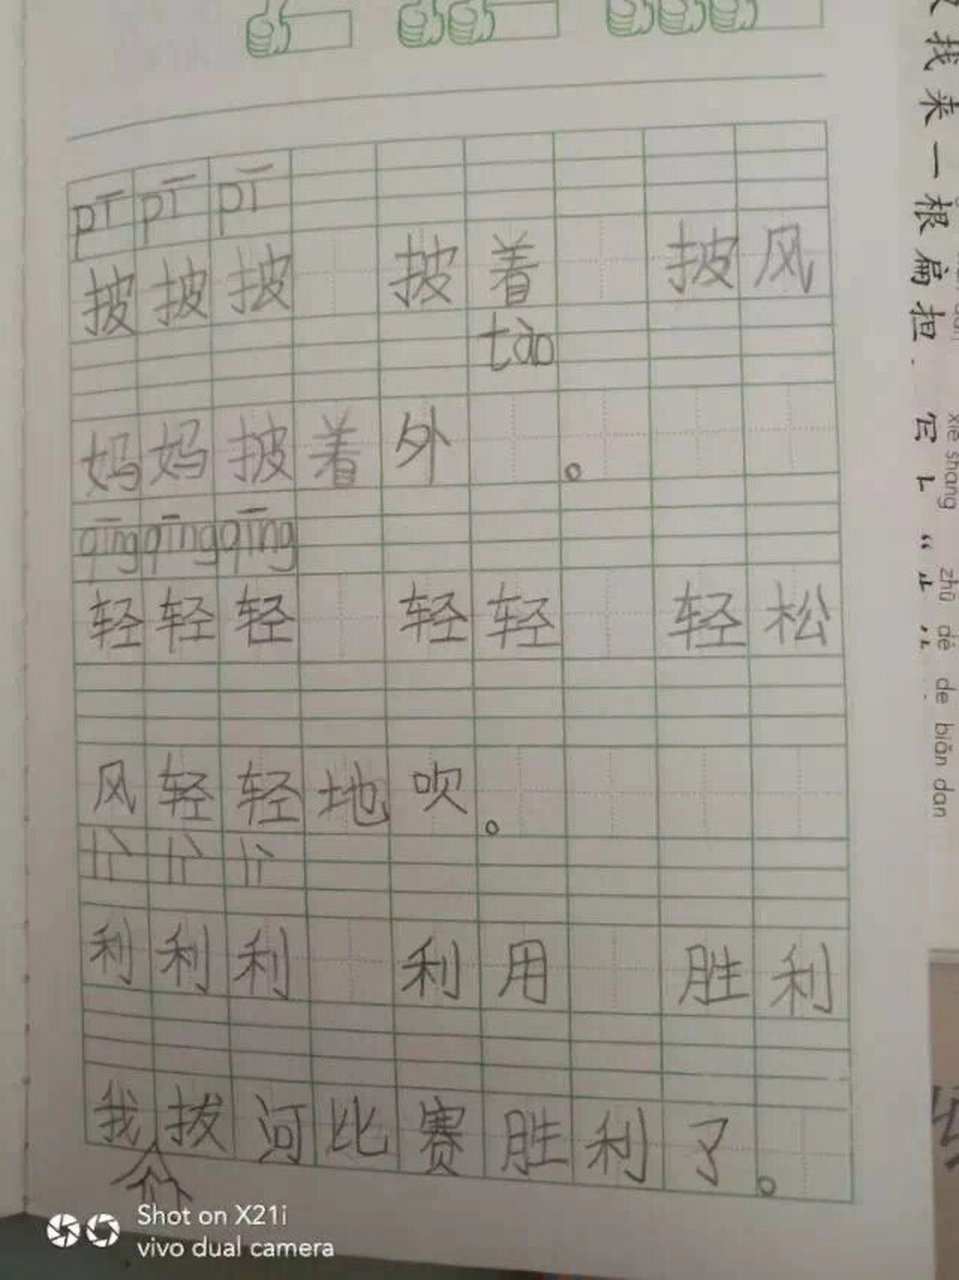 pī pī pī
披披披 披着 披风
tào
妈妈披着外 。
qīng qīng qīng
轻轻轻 轻轻 轻松
风轻轻地吹。
lì lì lì
利利利 利用 胜利
我拔河比赛胜利了。
们
找来一根扁担
xiě shang zhù dé de biǎn dan
Shot on X21i
vivo dual camera